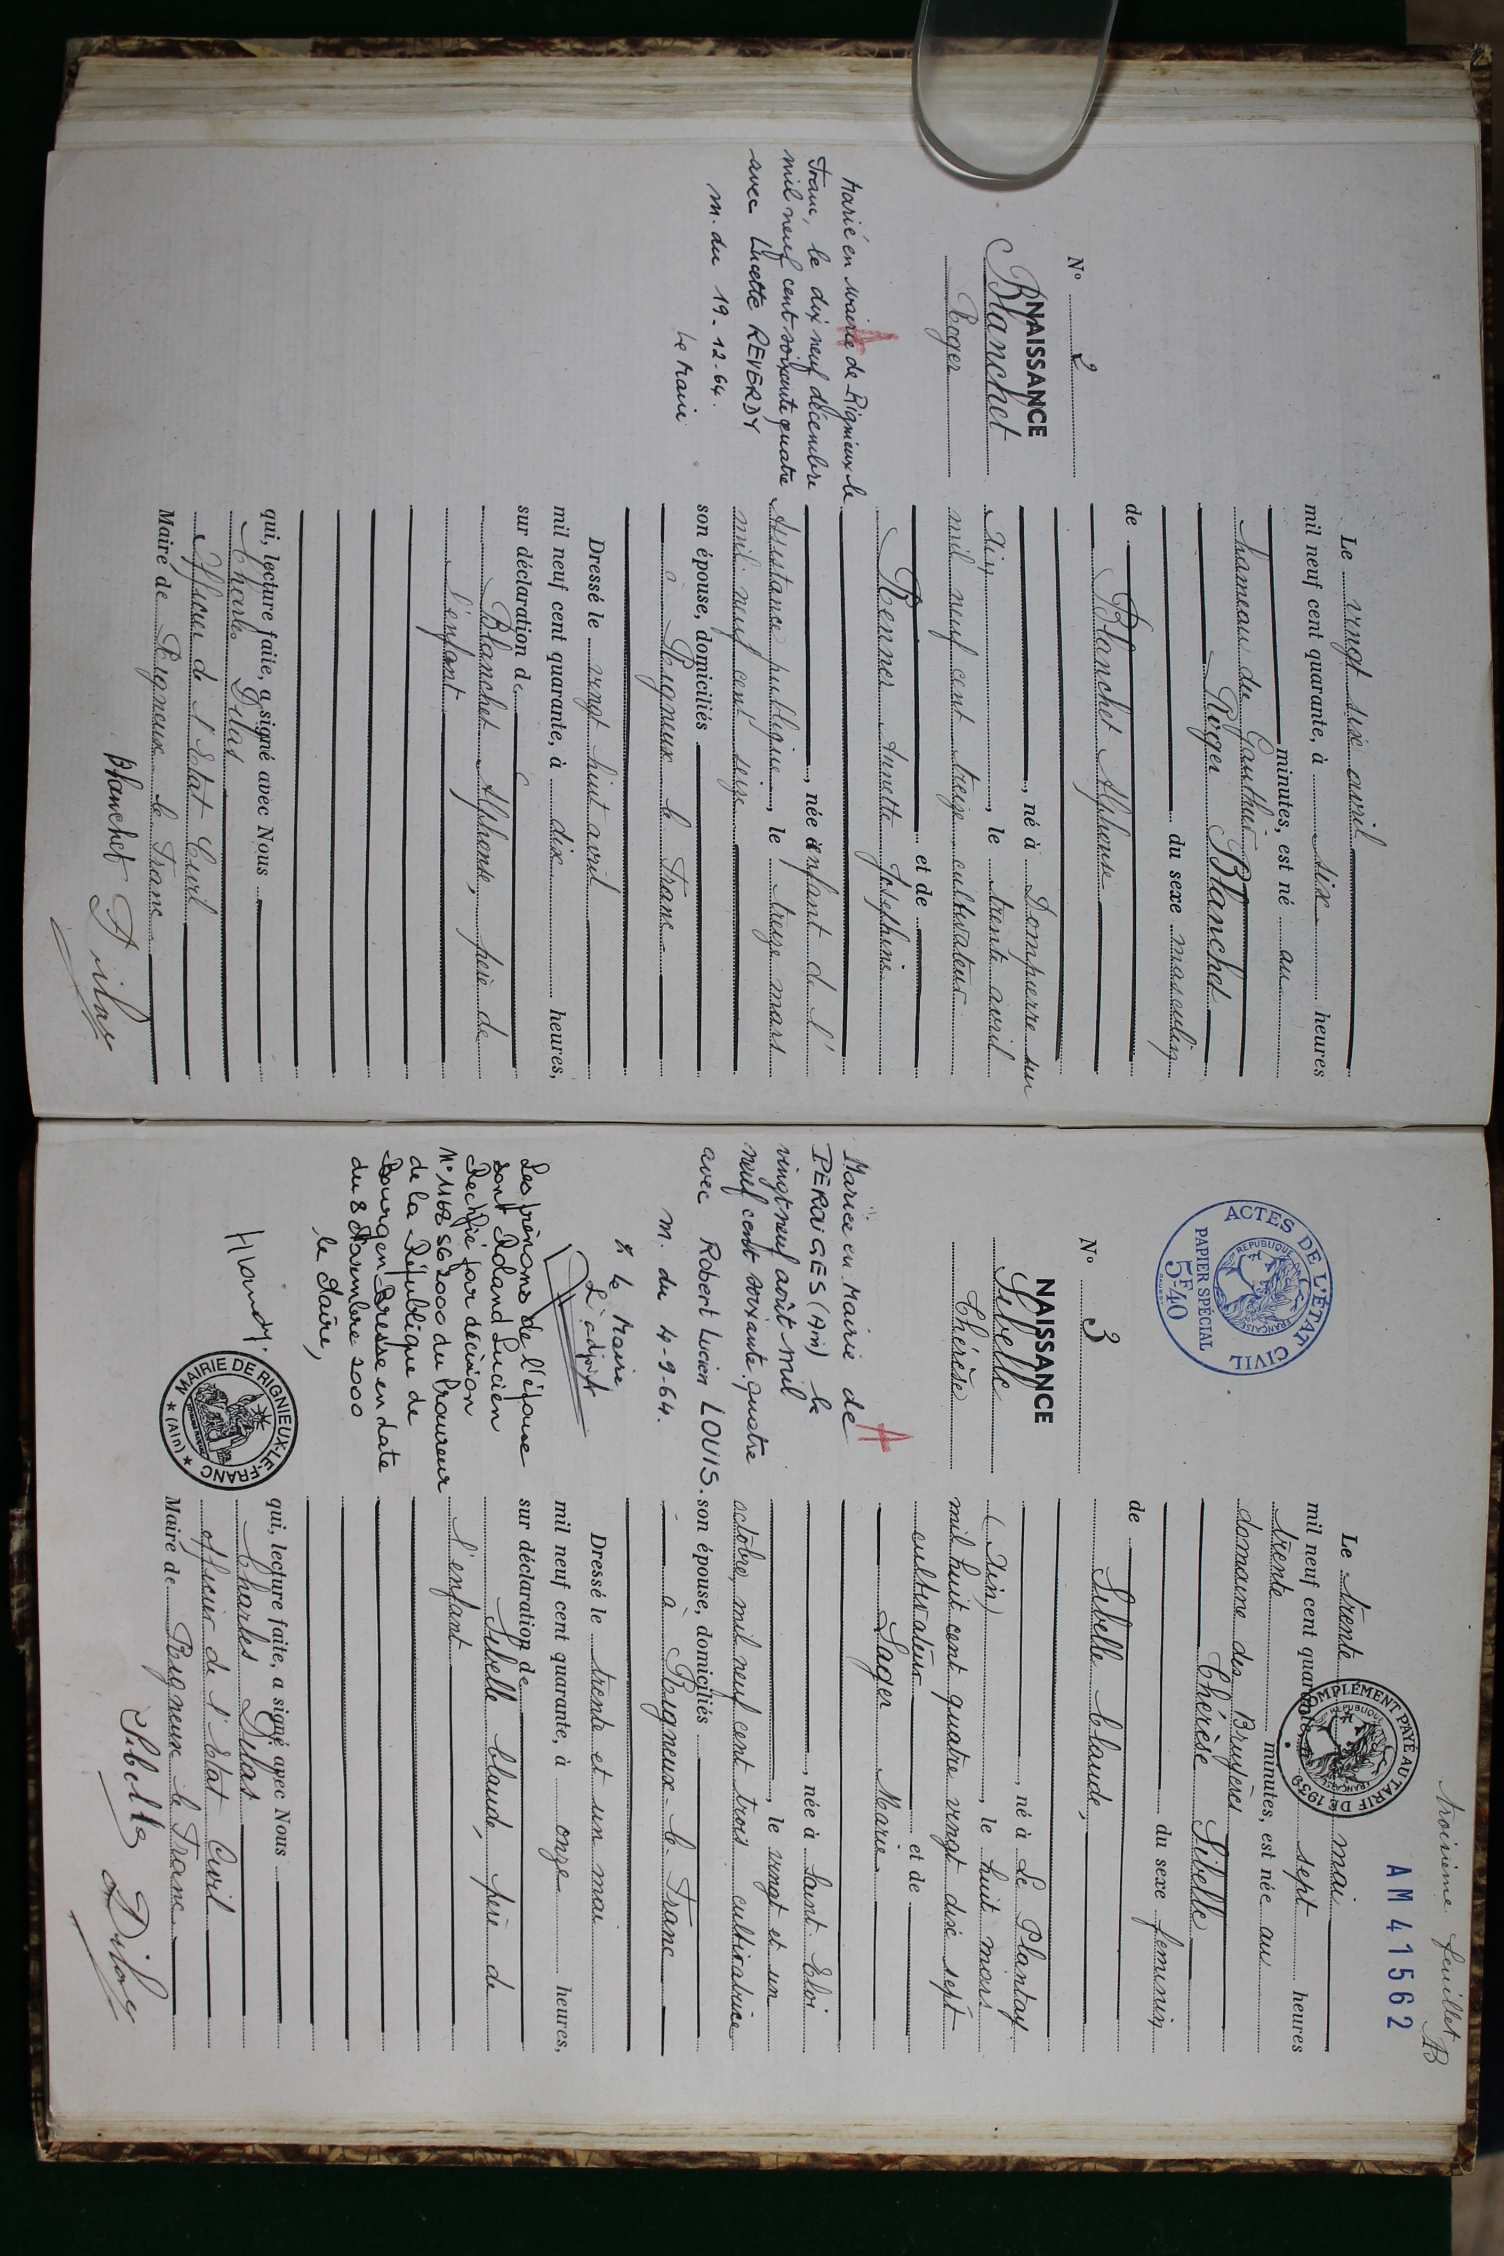 N° 2
NAISSANCE
Blanchet
Roger
Marié en mairie de Rignieux le
Franc, le dix neuf décembre
mil neuf cent soixante quatre
avec Lucette REVERDY
m. du 19-12-64.
Le Maire
Le vingt six avril
mil neuf cent quarante, à six heures
minutes, est né au
hameau du Gauthier
Roger Blanchet
du sexe masculin
de
Blanchet Alphonse
, né à Dompierre sur
Ain, le trente avril
mil neuf cent treize cultivateur
et de
Renner Annette Joséphine
, née enfant de l'
Assistance publique, le treize mars
mil neuf cent seize
son épouse, domiciliés
à Rigneux le Franc
Dressé le vingt huit avril
mil neuf cent quarante, à dix heures,
sur déclaration de
Blanchet Alphonse, père de
l'enfant
qui, lecture faite, a signé avec Nous
Charles Dilas
officier de l'Etat Civil
Maire de Rigneux le Franc
Blanchet Dilas
troisième feuillet
AM 41562
ACTES DE L'ÉTAT CIVIL
REPUBLIQUE FRANÇAISE
PAPIER SPÉCIAL
5F40
COMPLÉMENT PAYÉ AU TARIF DE 1939
REPUBLIQUE FRANÇAISE
N° 3
NAISSANCE
Sibelle
Thérèse
Mariée en Mairie de
PERouGES (Ain) le
vingt neuf août mil
neuf cent soixante quatre
avec Robert Lucien LOUIS.
m. du 4-9-64.
le Maire
L'adjoint
Les prénoms de l'époux
sont Roland Lucien
Rectifié par décision
N° 1168 56 2000 du Procureur
de la République de
Bourg en Bresse en date
du 8 Novembre 2000
le Maire,
MAIRIE DE RIGNIEUX-LE-FRANC
(Ain)
Le trente mai
mil neuf cent quarante, à sept heures
trente minutes, est née au
domaine des Bruyères
Thérèse Sibelle
du sexe féminin
de
Sibelle Claude,
, né à Le Plantay
(Ain), le huit mars
mil huit cent quatre vingt dix sept
cultivateur et de
Sager Marie
, née à Saint Eloi
, le vingt et un
octobre, mil neuf cent trois cultivatrice
son épouse, domiciliés
à Rigneux le Franc
Dressé le trente et un mai
mil neuf cent quarante, à onze heures,
sur déclaration de
Sibelle Claude, père de
l'enfant
qui, lecture faite, a signé avec Nous
Charles Dilas
officier de l'Etat Civil
Maire de Rigneux le Franc
Sibelle Dilas